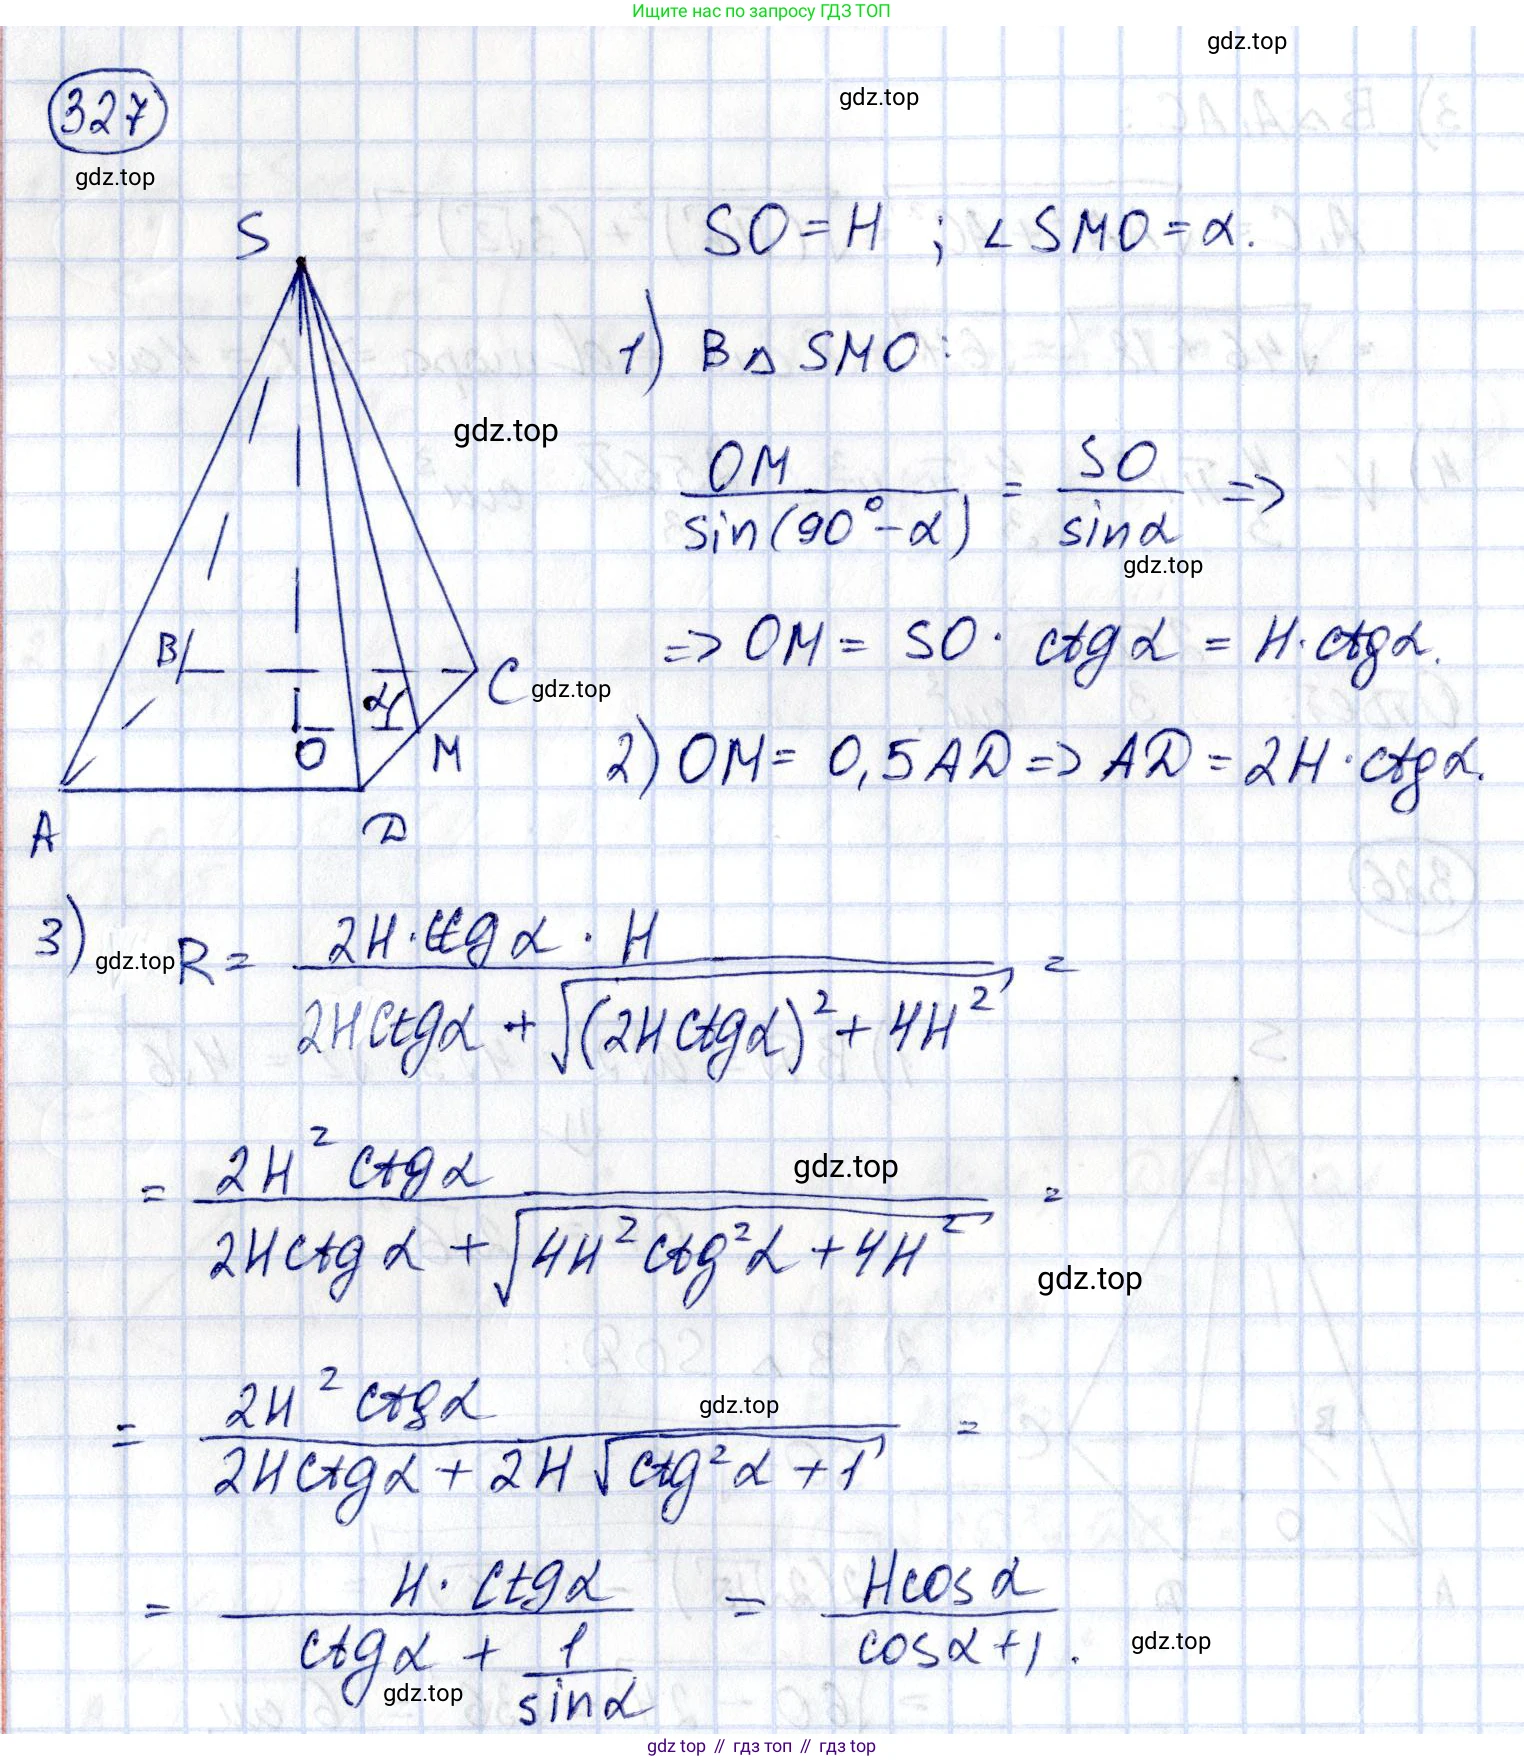 Ищите нас по запросу ГДЗ ТОП
gdz.top
gdz.top
327
gdz.top
S
SO = H ; ∠SMO = α.
1) В △ SMO:
gdz.top
OM/sin(90°-α) = SO/sinα =>
gdz.top
=> OM = SO · ctgα = H · ctgα.
B
C
gdz.top
α
O
M
2) OM = 0,5AD => AD = 2H · ctgα.
A
D
3)
gdz.top
R = (2H · ctgα · H)/(2Hctgα + √((2Hctgα)² + 4H²)) =
gdz.top
= (2H² ctgα)/(2Hctgα + √(4H²ctg²α + 4H²)) =
gdz.top
gdz.top
= (2H² ctgα)/(2Hctgα + 2H√(ctg²α + 1)) =
= (H · ctgα)/(ctgα + 1/sinα) = (Hcosα)/(cosα + 1).
gdz.top
gdz.top
gdz top // гдз топ // gdz top